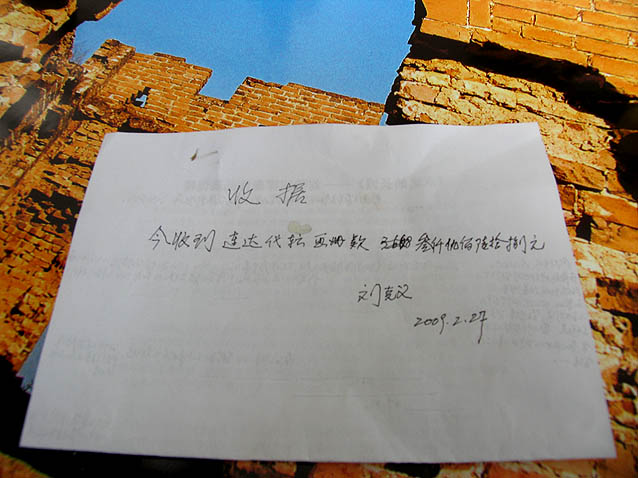 收据
今收到 连达代转画册款 叁仟伍佰陆拾捌元
刘克
2009.2.27